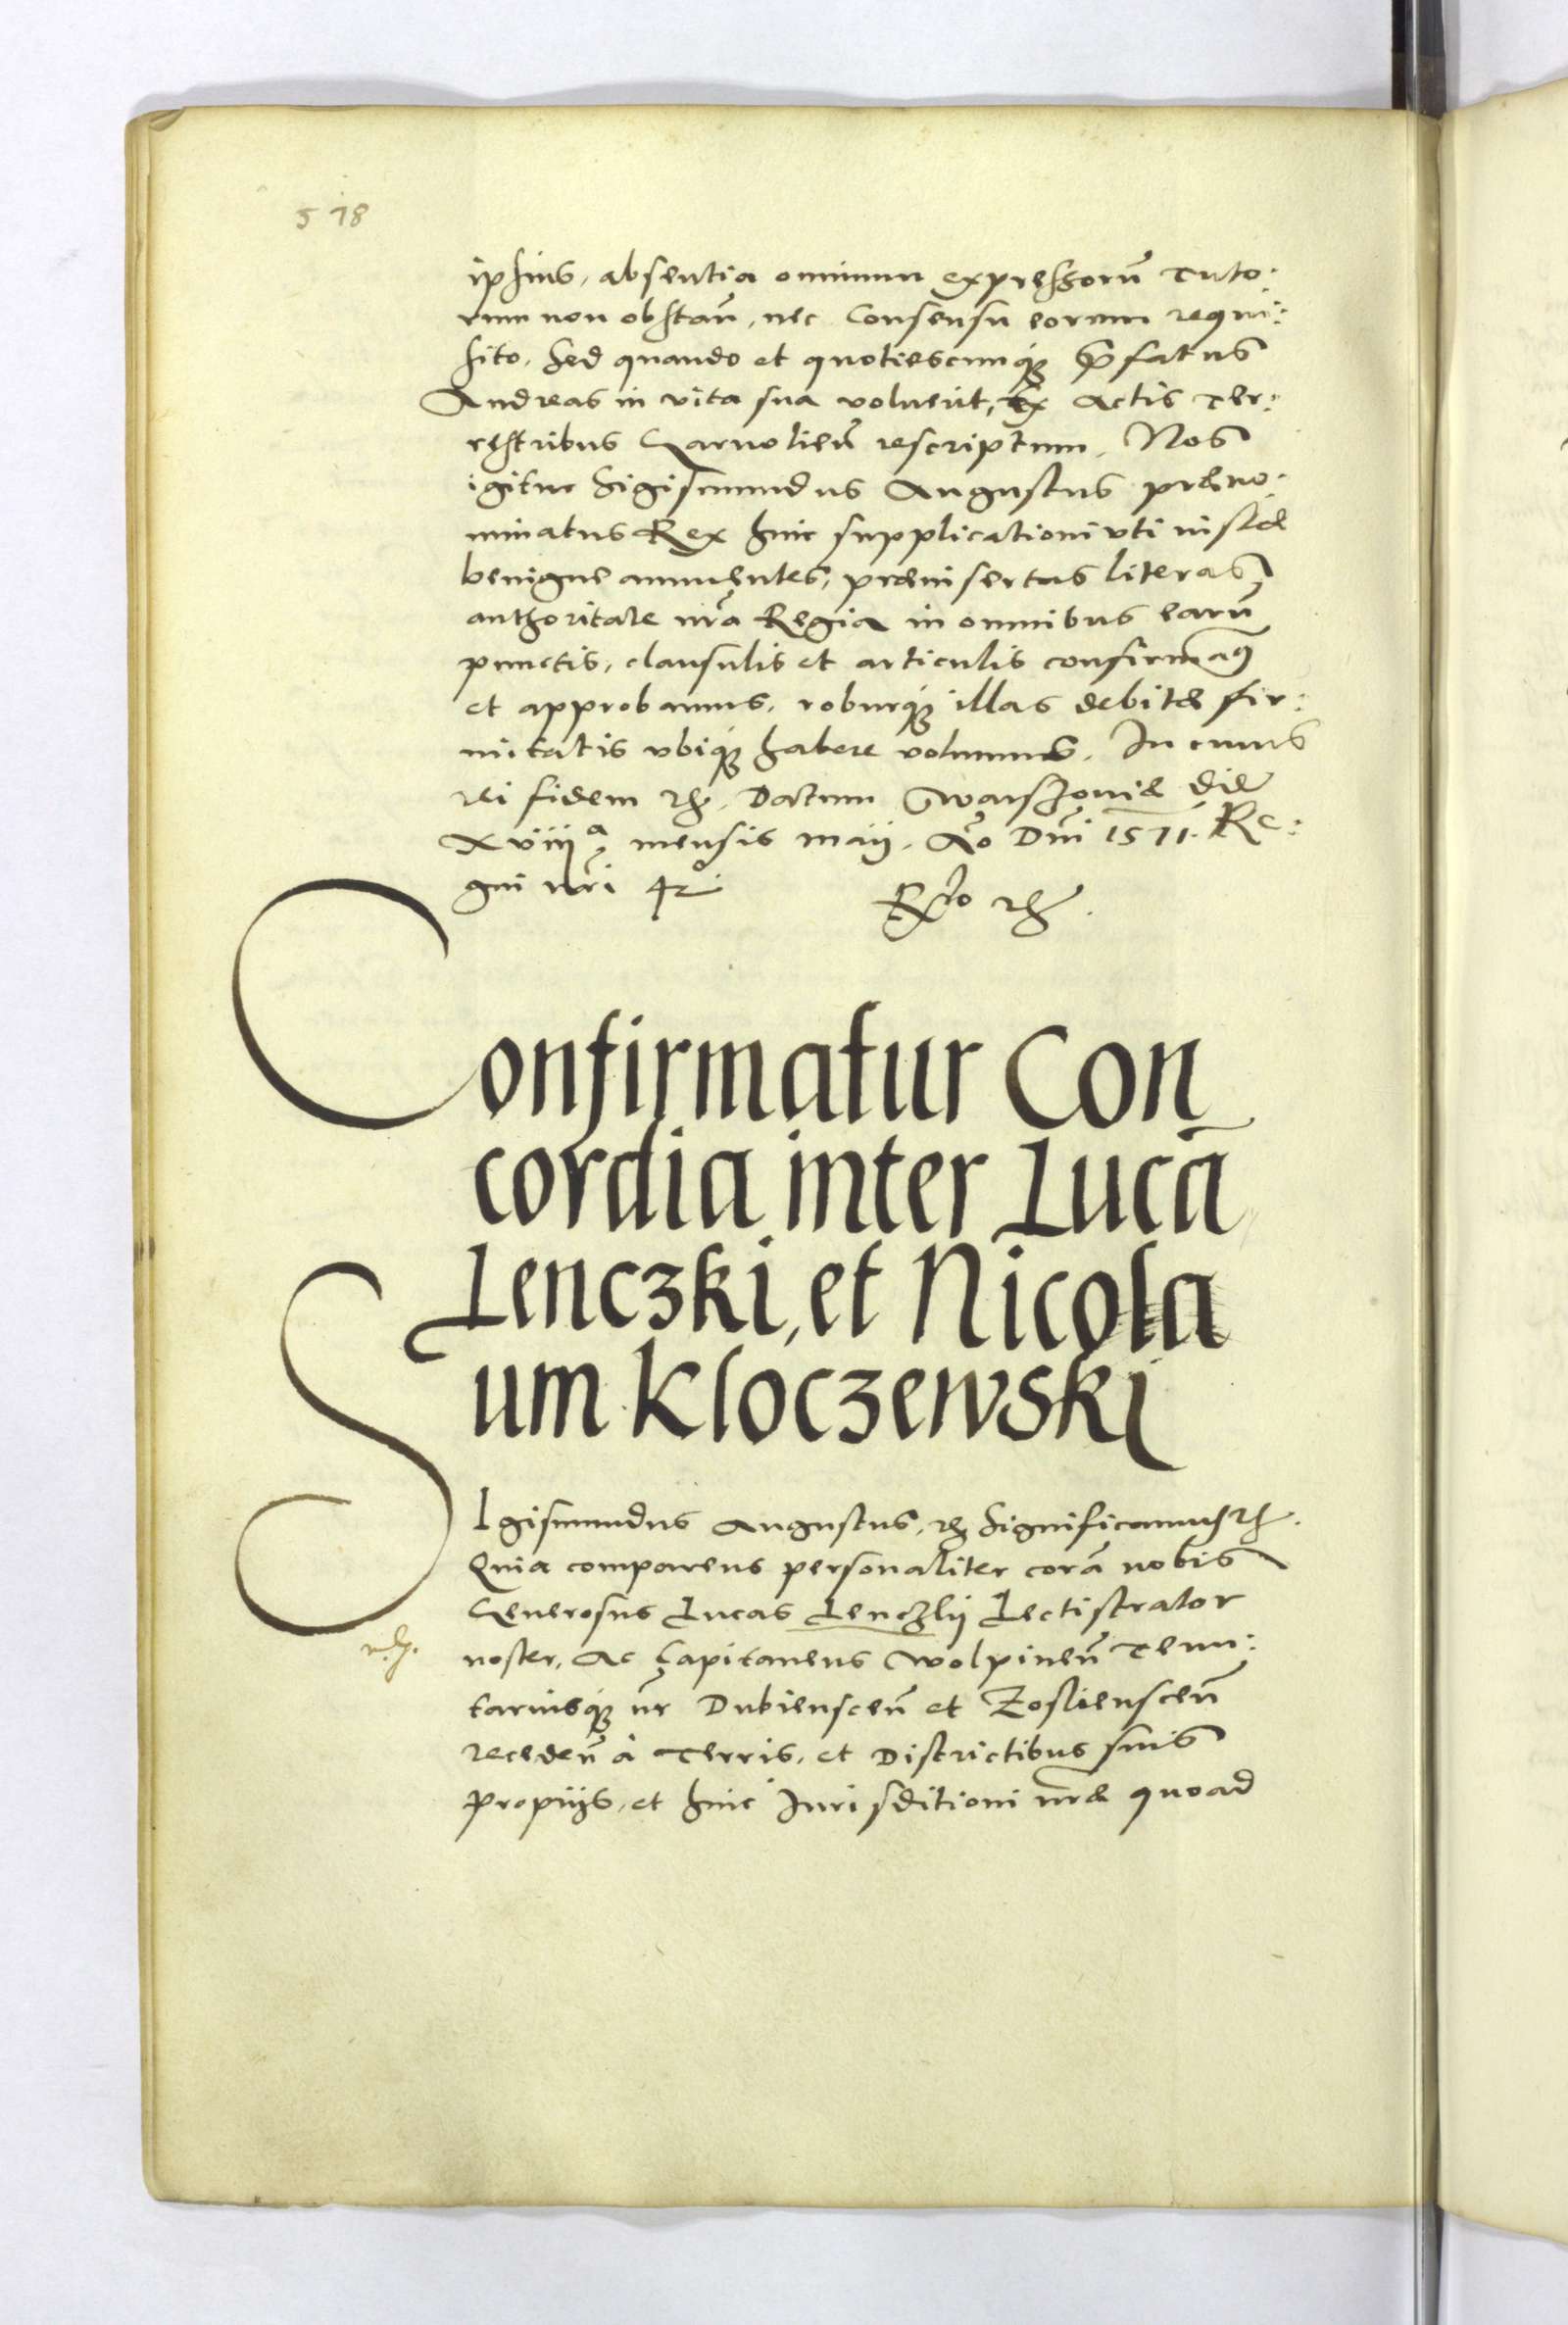 578
ipsius, absentia omnium expressorũ Tuto:
rum non obstañ, nec Consensu eorum requi:
sito, Sed quando et quotiescunq₃ p̃fatus
Andreas in vita sua voluerit, Ex Actis Ter:
restribus Garvolieñ rescriptum. Nos
igitur Sigismundus Augustus præno:
minatus Rex huic supplicationi uti iustæ
benigne annuentes, præinsertas literas
authoritate nr̃a Regia in omnibus earũ
punctis, clausulis et articulis confirmamꝰ
et approbamus, roburq₃ illas debitæ fir:
mitatis ubiq₃ habere volumus. In cuius
rei fidem ꝛc̃. Datum Warszoviæ die
xviiiiᵃ mensis Maij. Año Dñi 1571. Re:
gni nr̃i 42º
Rº ꝛc̃.
Confirmatur Con
cordia inter Lucã
Lenczki, et Nicola
um Kloczewski
SIgismundus Augustus, ꝛc̃ Significamus ꝛc̃.
Quia comparens personaliter corã nobis
Generosus Lucas Lenczkij Lectistrator
noster, Ac Capitaneus Wolpineñ Tenu:
tariusq₃ nr̃ Dubiensceñ et Zosliensceñ
recedeñ à Terris, et Districtibus suis
propijs, et huic Jurisditioni nr̃æ quoad